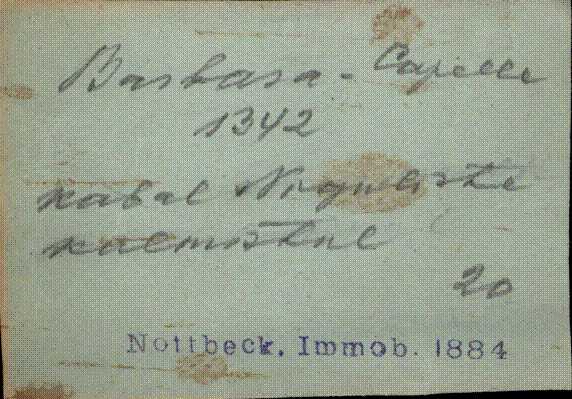 Barbara - Capelle
1342
kabal Niguliste
kalmistul
20
Nottbeck. Immob. 1884